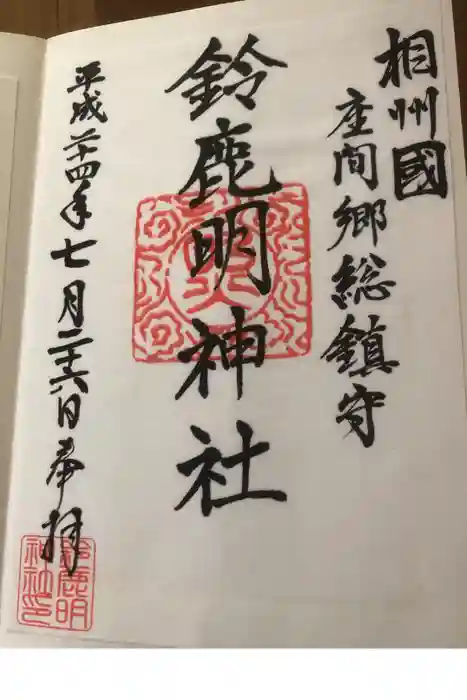 相州國
座間郷総鎮守
鈴鹿明神社
平成二十四年七月二十六日奉拝
鈴鹿明
神社印